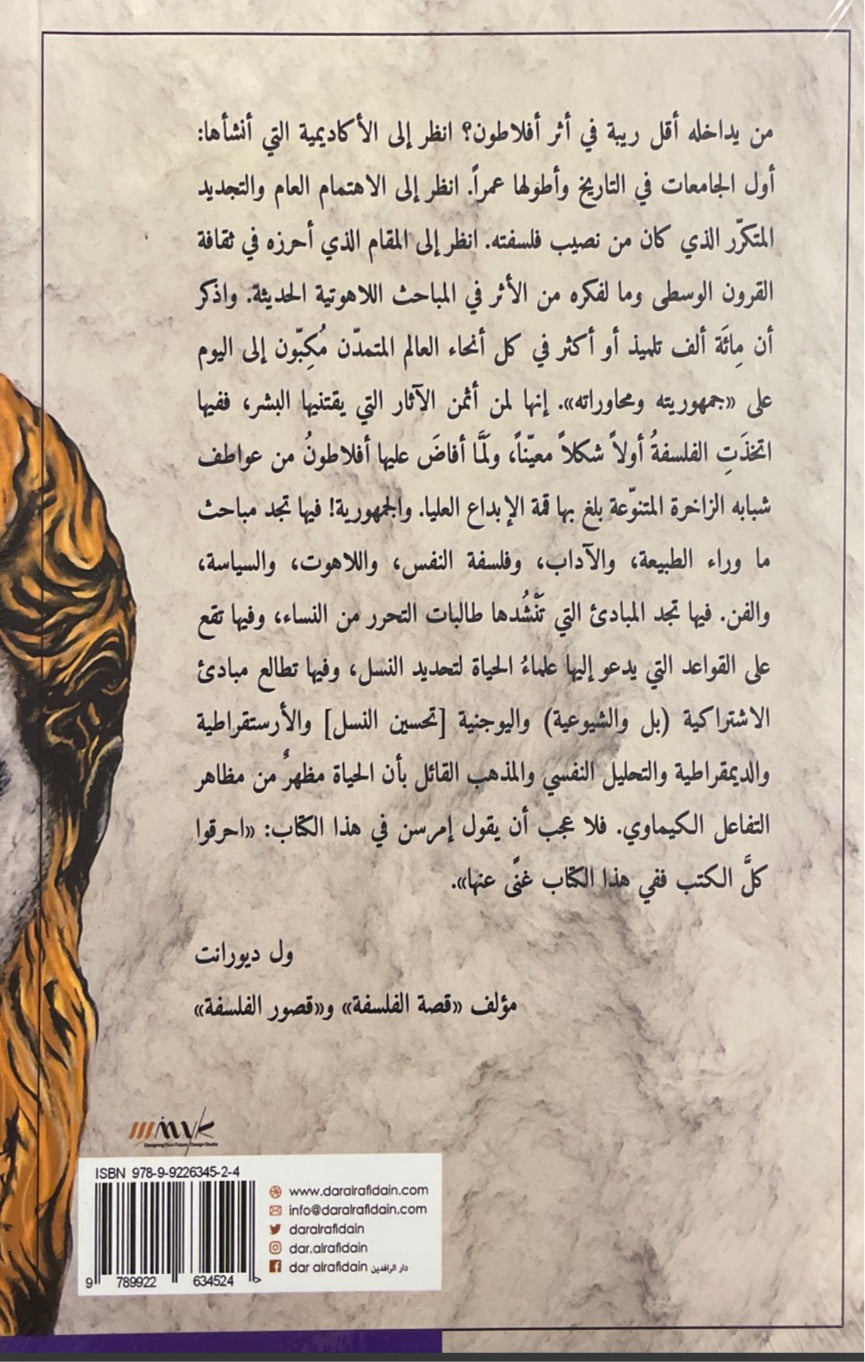 من يداخله أقل ريبة في أثر أفلاطون؟ انظر إلى الأكاديمية التي أنشأها:
أول الجامعات في التاريخ وأطولها عمراً. انظر إلى الاهتمام العام والتجديد
المتكرّر الذي كان من نصيب فلسفته. انظر إلى المقام الذي أحرزه في ثقافة
القرون الوسطى وما لفكره من الأثر في المباحث اللاهوتية الحديثة. واذكر
أن مِائَة ألف تلميذ أو أكثر في كل أنحاء العالم المتمدّن مُكِبّون إلى اليوم
على «جمهوريته ومحاوراته». إنها لمن أثمن الآثار التي يقتنيها البشر، ففيها
اتخذَتِ الفلسفةُ أولاً شكلاً معيّناً، ولَمَّا أفاضَ عليها أفلاطونُ من عواطف
شبابه الزاخرة المتنوّعة بلغ بها قمة الإبداع العليا. والجمهورية! فيها تجد مباحث
ما وراء الطبيعة، والآداب، وفلسفة النفس، واللاهوت، والسياسة،
والفن. فيها تجد المبادئ التي تَنْشُدها طالبات التحرر من النساء، وفيها تقع
على القواعد التي يدعو إليها علماءُ الحياة لتحديد النسل، وفيها تطالع مبادئ
الاشتراكية (بل والشيوعية) واليوجنية [تحسين النسل] والأرستقراطية
والديمقراطية والتحليل النفسي والمذهب القائل بأن الحياة مظهرٌ من مظاهر
التفاعل الكيماوي. فلا عجب أن يقول إمرسن في هذا الكتاب: «احرقوا
كلَّ الكتب ففي هذا الكتاب غنًى عنها».
ول ديورانت
مؤلف «قصة الفلسفة» و«قصور الفلسفة»
ISBN 978-9-9226345-2-4
www.daralrafidain.com
info@daralrafidain.com
daralrafidain
dar.alrafidain
dar alrafidain دار الرافدين
9 789922 634524